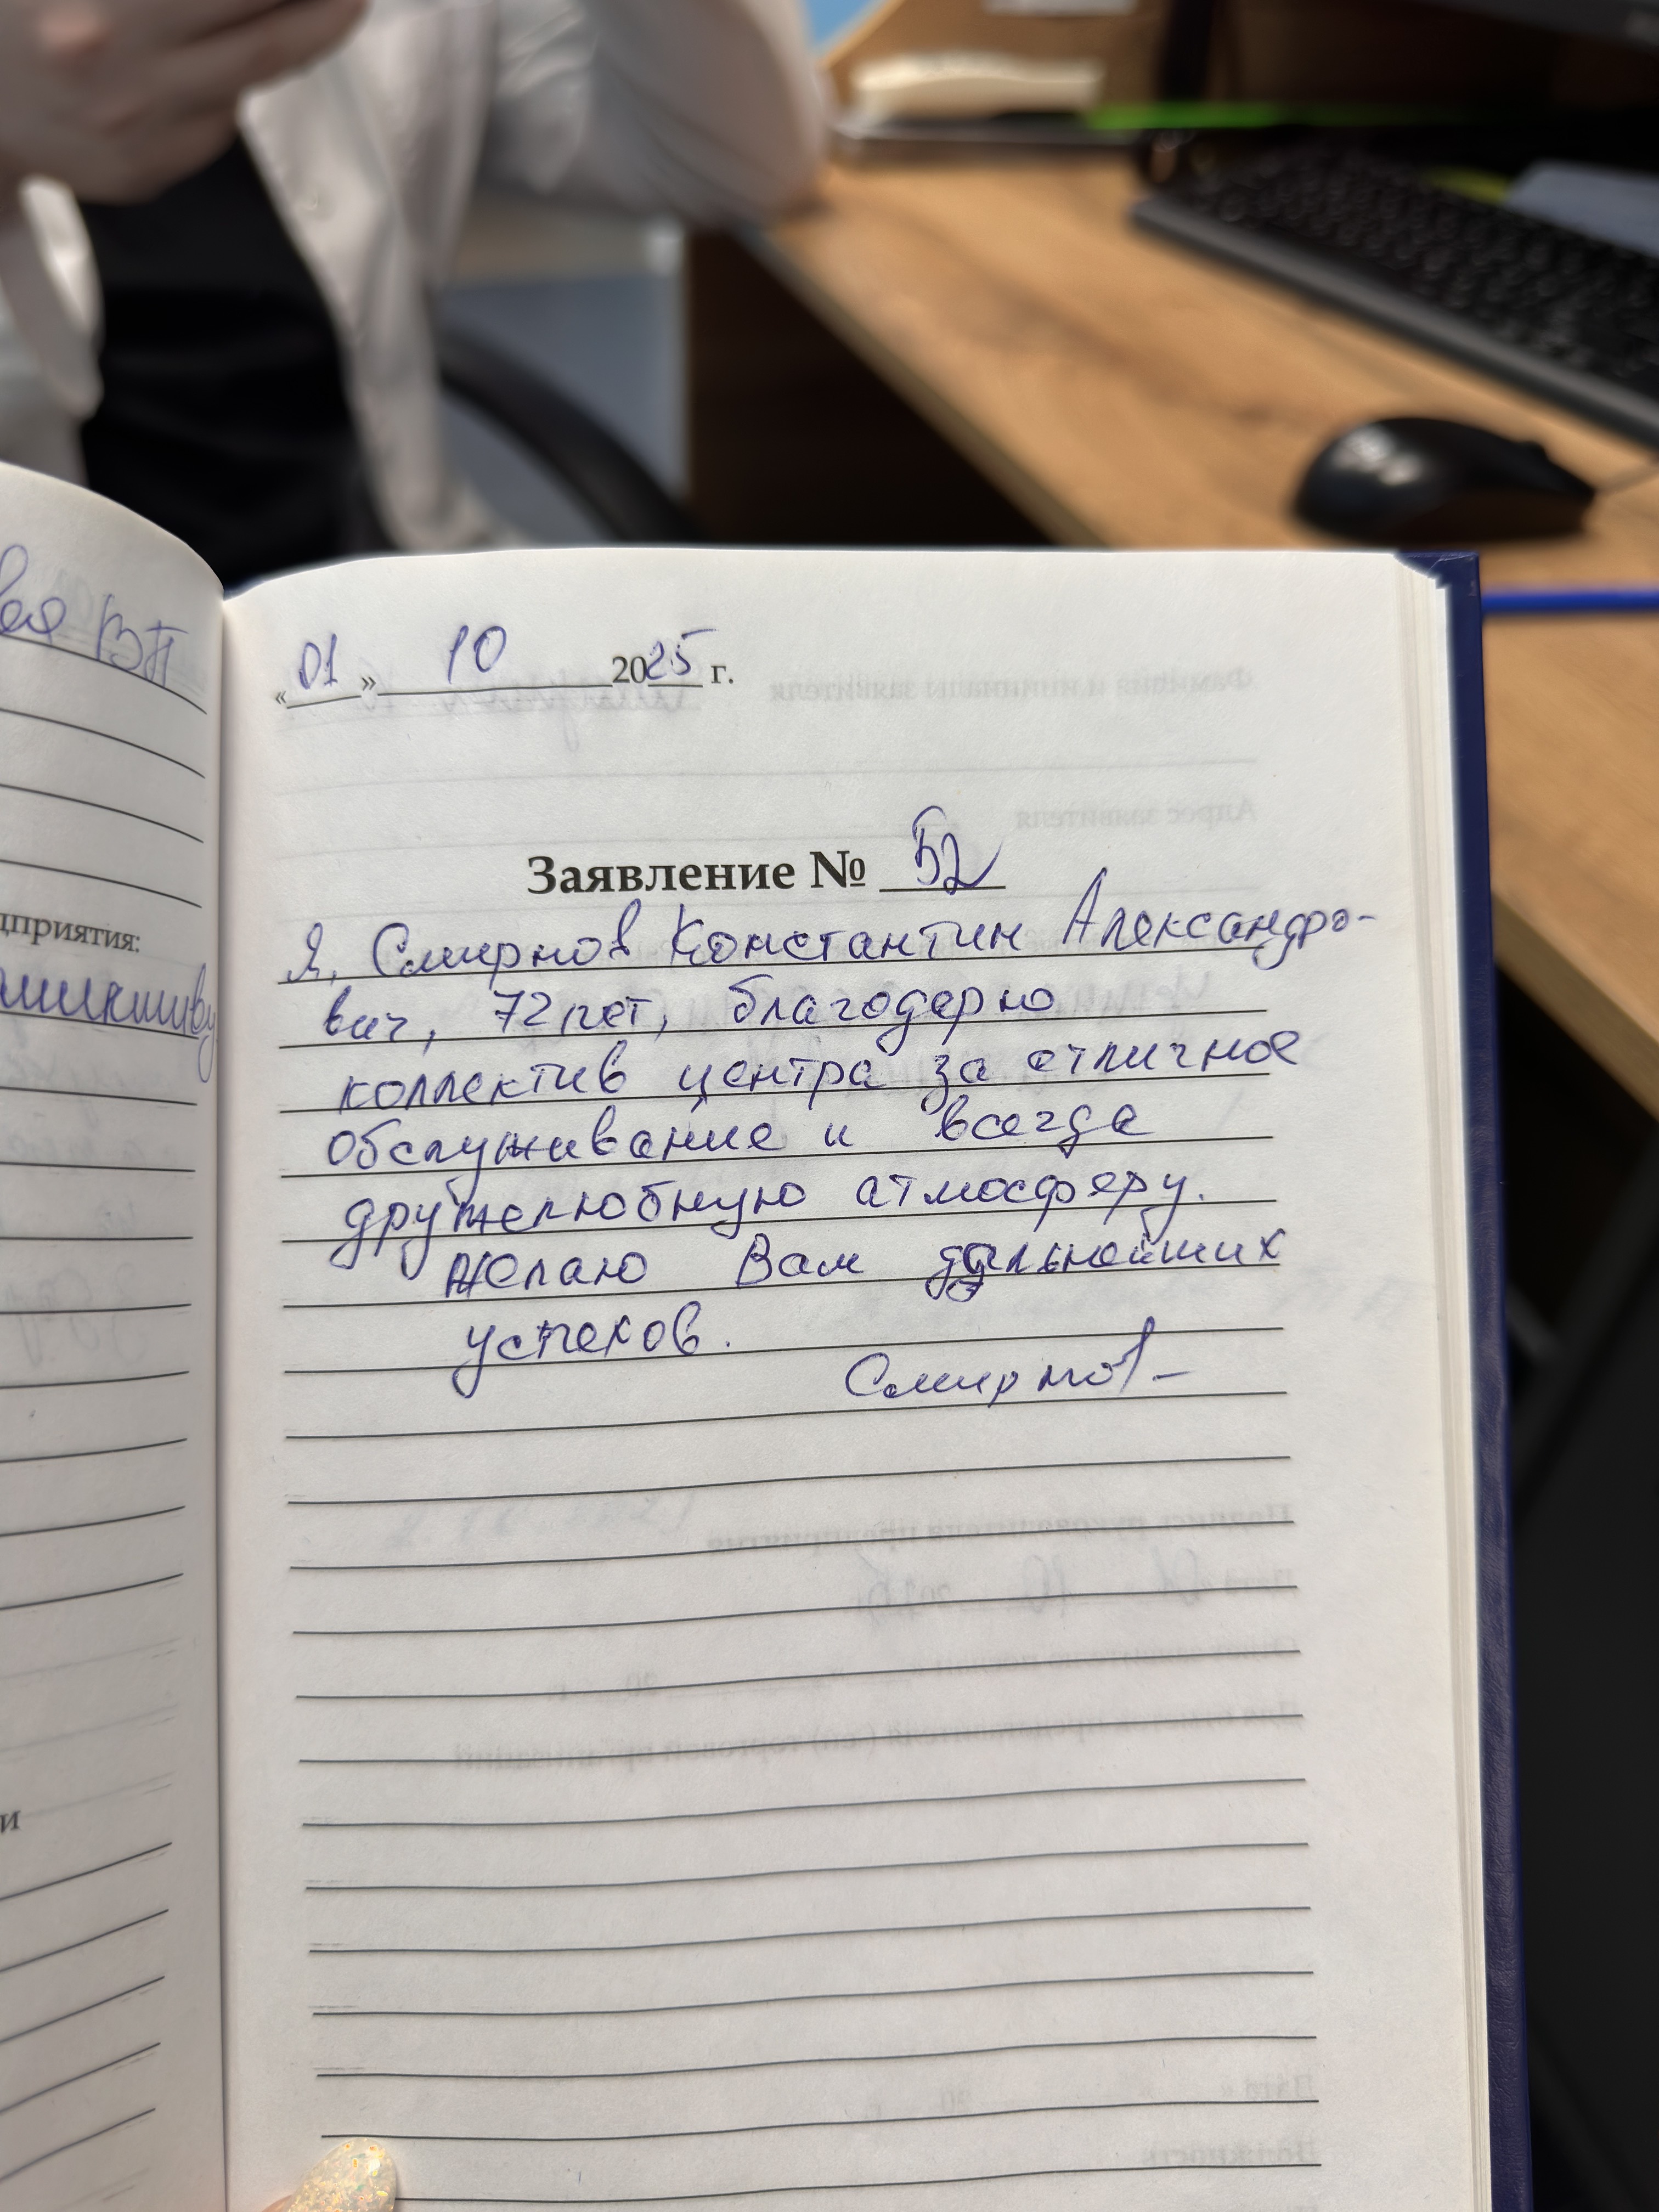 вая ВП
дприятия:
и
«01» 10 2025 г.
Заявление № 52
Я, Смирнов Константин Александро-
вич, 72 лет, благодарю
коллектив центра за отличное
обслуживание и всегда
дружелюбную атмосферу.
Желаю Вам дальнейших
успехов.
Смирнов